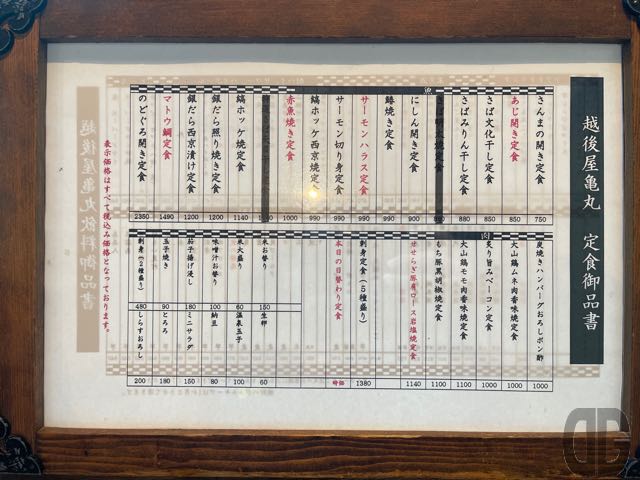 越後屋亀丸 定食御品書
魚
さんまの開き定食 750
あじ開き定食 850
さば文化干し定食 850
さばみりん干し定食 880
定食
にしん開き定食 900
鰆焼き定食 990
サーモンハラス定食 990
サーモン切り身定食 990
縞ホッケ西京焼定食 990
赤魚焼き定食 1000
縞ホッケ焼定食 1140
銀だら照り焼き定食 1200
銀だら西京漬け定食 1200
マトウ鯛定食 1490
のどぐろ開き定食 2350
肉
炭焼きハンバーグおろしポン酢 1000
大山鶏ムネ肉香味焼定食 1000
炙り旨みベーコン定食 1000
大山鶏モモ肉香味焼定食 1100
もち豚黒胡椒焼定食 1100
せせらぎ豚肩ロース岩塩焼定食 1140
刺身定食(5種盛り) 1380
本日の日替わり定食 時価
米お替り 150
米大盛り 60
味噌汁お替り 100
茄子揚げ浸し 180
玉子焼き 90
刺身(2種盛り) 480
生卵 60
温泉玉子 100
納豆 80
ミニサラダ 150
とろろ 180
しらすおろし 200
表示価格はすべて税込み価格となっております。
越後屋亀丸飲料御品書